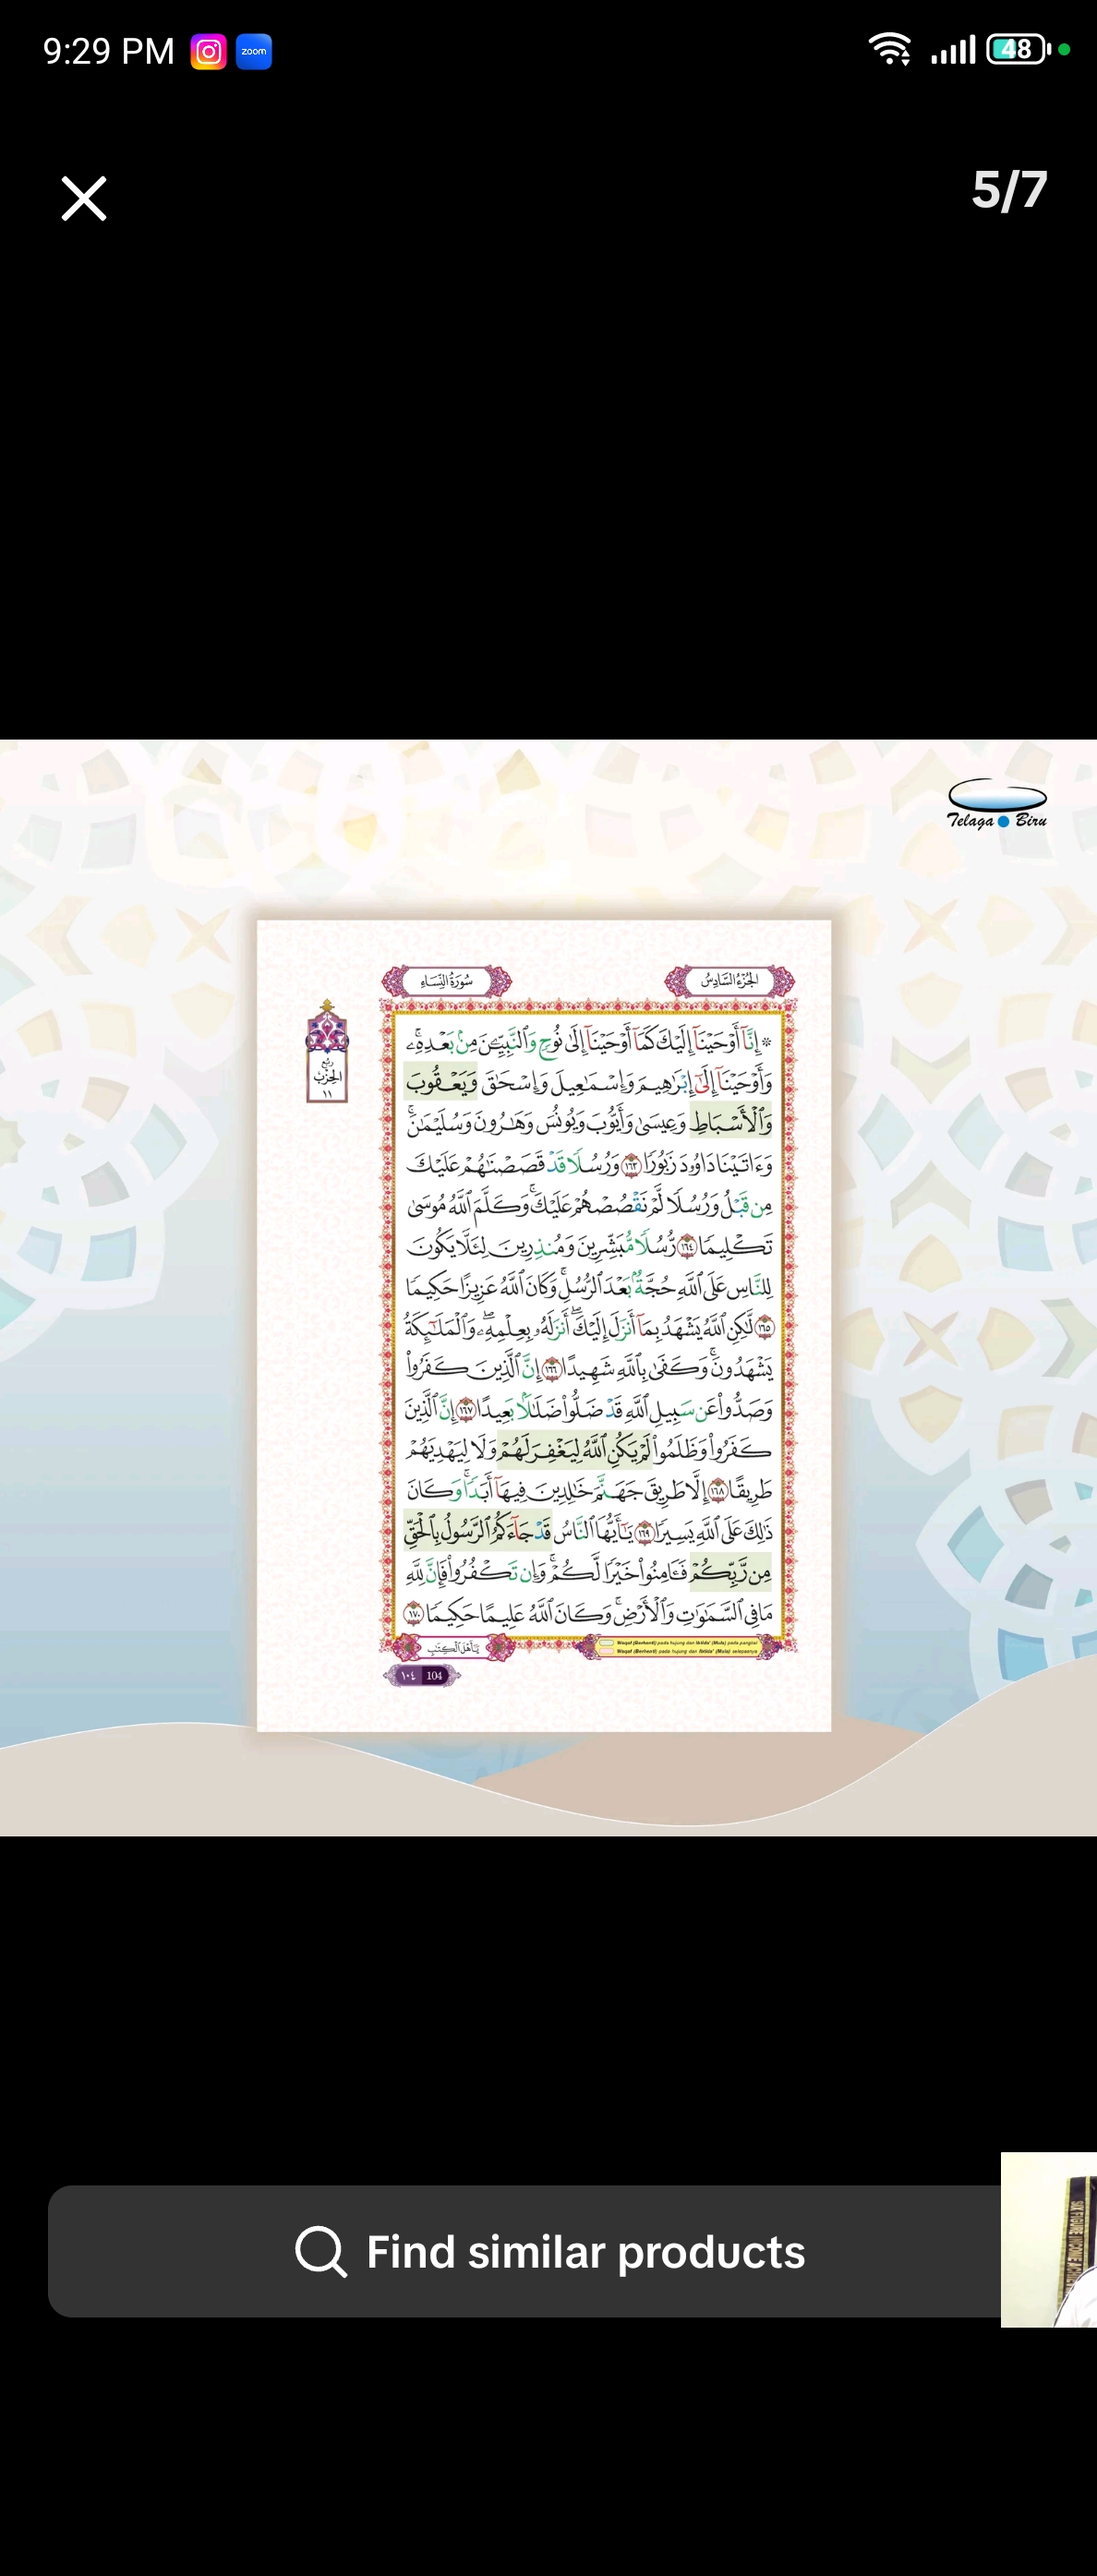 9:29 PM
zoom
48
5/7
Telaga Biru
الجُزْءُ السَّادِسُ
سُورَةُ النِّسَاءِ
رُبْع
الحِزْب
١١
۞ إِنَّآ أَوْحَيْنَآ إِلَيْكَ كَمَآ أَوْحَيْنَآ إِلَىٰ نُوحٍ وَٱلنَّبِيِّـۧنَ مِنۢ بَعْدِهِۦۚ
وَأَوْحَيْنَآ إِلَىٰٓ إِبْرَٰهِيمَ وَإِسْمَٰعِيلَ وَإِسْحَٰقَ وَيَعْقُوبَ
وَٱلْأَسْبَاطِ وَعِيسَىٰ وَأَيُّوبَ وَيُونُسَ وَهَٰرُونَ وَسُلَيْمَٰنَۚ
وَءَاتَيْنَا دَاوُۥدَ زَبُورًا ١٦٣ وَرُسُلًا قَدْ قَصَصْنَٰهُمْ عَلَيْكَ
مِن قَبْلُ وَرُسُلًا لَّمْ نَقْصُصْهُمْ عَلَيْكَۚ وَكَلَّمَ ٱللَّهُ مُوسَىٰ
تَكْلِيمًا ١٦٤ رُّسُلًا مُّبَشِّرِينَ وَمُنذِرِينَ لِئَلَّا يَكُونَ
لِلنَّاسِ عَلَى ٱللَّهِ حُجَّةٌۢ بَعْدَ ٱلرُّسُلِۚ وَكَانَ ٱللَّهُ عَزِيزًا حَكِيمًا
١٦٥ لَّٰكِنِ ٱللَّهُ يَشْهَدُ بِمَآ أَنزَلَ إِلَيْكَۖ أَنزَلَهُۥ بِعِلْمِهِۦۖ وَٱلْمَلَٰٓئِكَةُ
يَشْهَدُونَۚ وَكَفَىٰ بِٱللَّهِ شَهِيدًا ١٦٦ إِنَّ ٱلَّذِينَ كَفَرُوا۟
وَصَدُّوا۟ عَن سَبِيلِ ٱللَّهِ قَدْ ضَلُّوا۟ ضَلَٰلًۢا بَعِيدًا ١٦٧ إِنَّ ٱلَّذِينَ
كَفَرُوا۟ وَظَلَمُوا۟ لَمْ يَكُنِ ٱللَّهُ لِيَغْفِرَ لَهُمْ وَلَا لِيَهْدِيَهُمْ
طَرِيقًا ١٦٨ إِلَّا طَرِيقَ جَهَنَّمَ خَٰلِدِينَ فِيهَآ أَبَدًاۚ وَكَانَ
ذَٰلِكَ عَلَى ٱللَّهِ يَسِيرًا ١٦٩ يَٰٓأَيُّهَا ٱلنَّاسُ قَدْ جَآءَكُمُ ٱلرَّسُولُ بِٱلْحَقِّ
مِن رَّبِّكُمْ فَـَٔامِنُوا۟ خَيْرًا لَّكُمْۚ وَإِن تَكْفُرُوا۟ فَإِنَّ لِلَّهِ
مَا فِى ٱلسَّمَٰوَٰتِ وَٱلْأَرْضِۚ وَكَانَ ٱللَّهُ عَلِيمًا حَكِيمًا ١٧٠
Waqaf (Berhenti) pada hujung dan Ibtida' (Mula) pada pangkal
Waqaf (Berhenti) pada hujung dan Ibtida' (Mula) selepasnya
يَٰٓأَهْلَ ٱلْكِتَٰبِ
١٠٤ 104
Find similar products